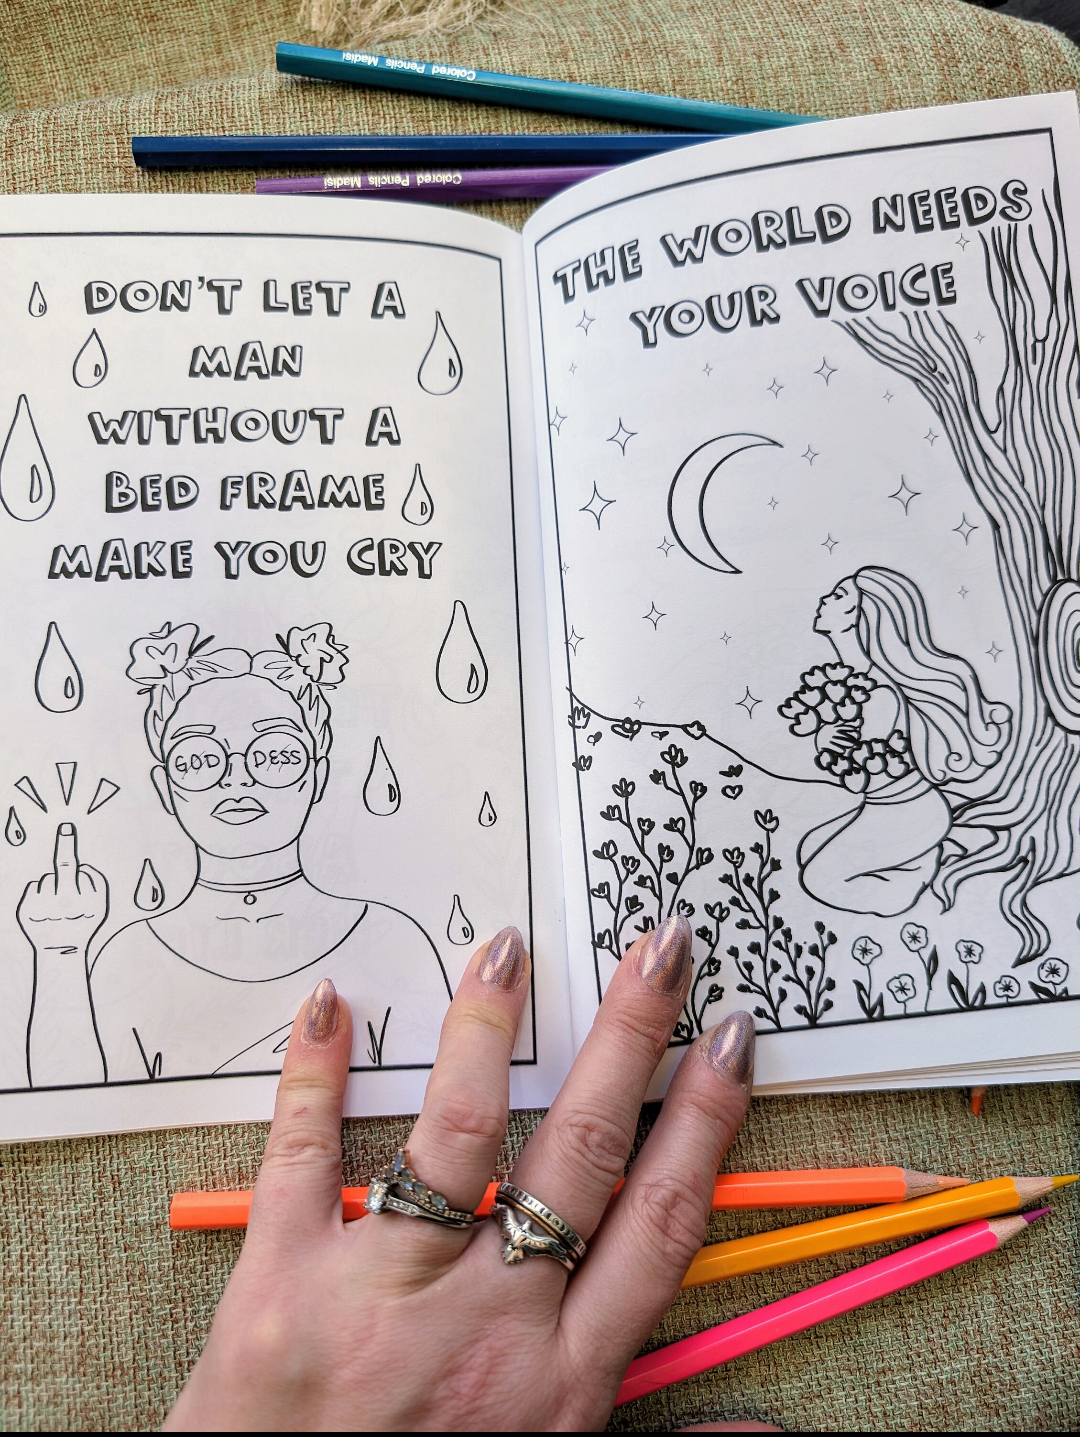 Colored Pencils Madisi
Colored Pencils Madisi
DON'T LET A
MAN
WITHOUT A
BED FRAME
MAKE YOU CRY
GOD DESS
THE WORLD NEEDS
YOUR VOICE